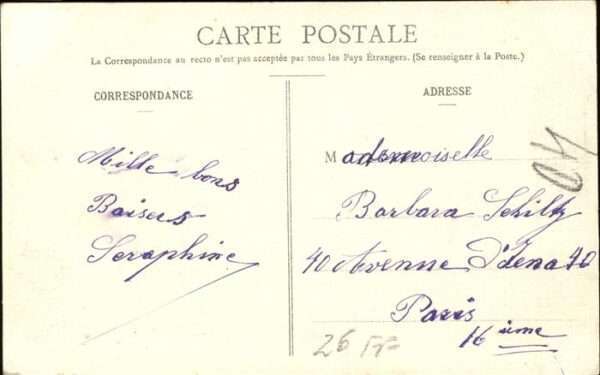 CARTE POSTALE
La Correspondance au recto n'est pas acceptée par tous les Pays Étrangers. (Se renseigner à la Poste.)
CORRESPONDANCE
Mille bons
Baisers
Seraphine
ADRESSE
Mademoiselle
Barbara Schiltz
40 Avenue d'Iéna 40
Paris
16 ième
26